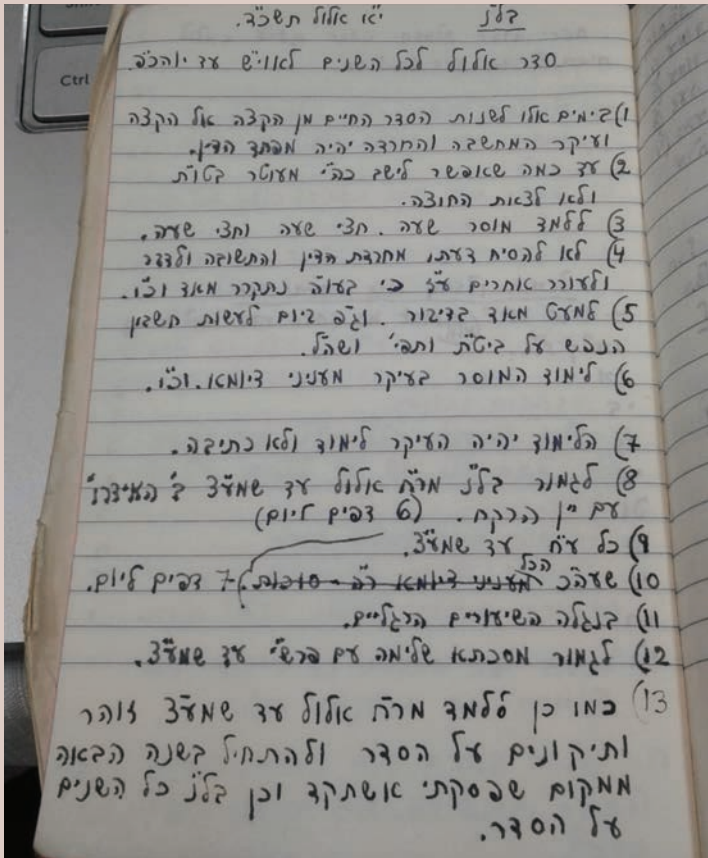 Shift
Ctrl
בל"נ   י"א אלול תשכ"ד.
סדר אלול לכל השנים לאוי"ש עד יוהכ"פ.
1) בימים אלו לשנות הסדר החיים מן הקצה אל הקצה
ועיקר המחשבה והחרדה יהיה מפחד הדין.
2) עד כמה שאפשר לישב בה"י מעוטר בטו"ת
ולא לצאת החוצה.
3) ללמד מוסר שעה. חצי שעה וחצי שעה.
4) לא להסיח דעתו מחרדת הדין והתשובה ולדבר
ולעורר אחרים ע"ז כי בעוה"ר נתקרר מאד וכו'.
5) למעט מאד בדיבור. וג"פ ביום לעשות חשבון
הנפש על ביט"ת ותפי' ושה"ל.
6) לימוד המוסר בעיקר מעניני דיומא. וכו'.
7) הלימוד יהיה העיקר לימוד ולא כתיבה.
8) לגמור בל"נ מר"ח אלול עד שמע"צ ב'
עם יין הרקח. (6 דפים ליום)
9) כל ע"ח עד שמע"צ.
10) שעה"כ הכל מעניני דיומא ר"ה - סוכות. 7 דפים ליום.
11) בנגלה השיעורים הרגליים.
12) לגמור מסכתא שלימה עם פרש"י עד שמע"צ.
13) כמו כן ללמד מר"ח אלול עד שמע"צ זוהר
ותיקונים על הסדר ולהתחיל בשנה הבאה
ממקום שפסקתי אשתקד וכן בל"נ כל השנים
על הסדר.